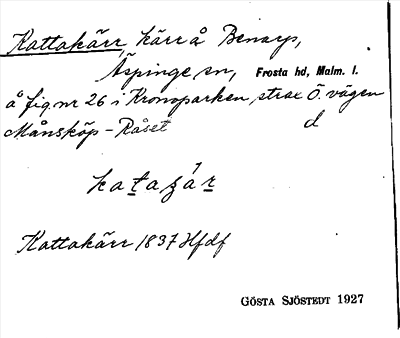 Kattakärr, kärr å Benarp,
Äspinge sn, Frosta hd, Malm. l.
å fig. nr 26 i Kronoparken, strax Ö. vägen
Månsköp - Råset d
Kattakärr 1837 Hfdf
GÖSTA SJÖSTEDT 1927